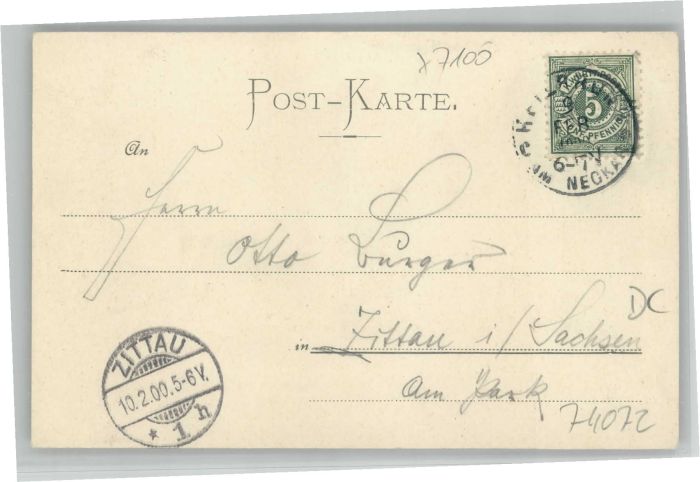 x7100
POST-KARTE.
5
FÜNF PFENNIG
6-7N
NECKAR
An
Herrn
Otto Burger
DC
in Zittau i/Sachsen
Am Park
74072
ZITTAU
10.2.00.5-6V.
* 1 h